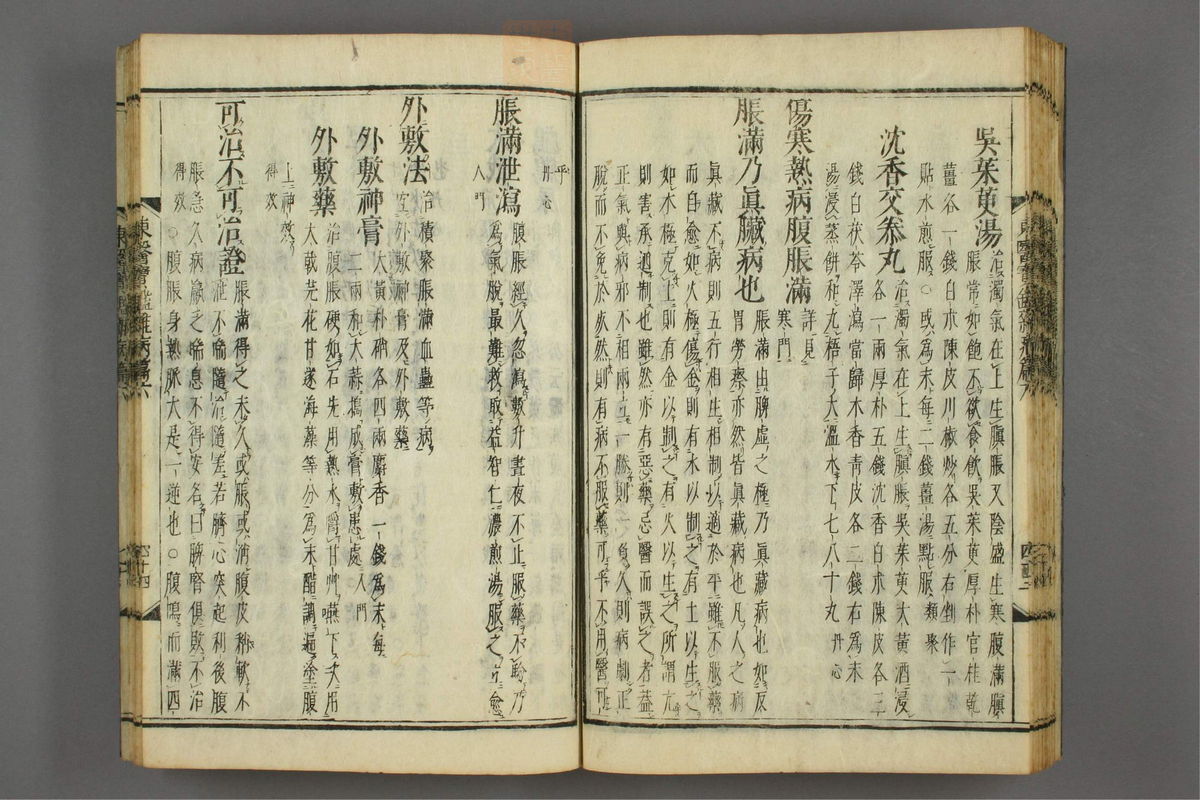 吳茱萸湯
治濁氣在上生䐜脹又陰盛生寒腹滿䐜
脹常如飽不欲食飮吳茱萸厚朴官桂乾
薑各一錢白朮陳皮川椒炒各五分右剉作一
貼水煎服○或爲末每二錢薑湯點服類聚
沈香交泰丸
治濁氣在上生䐜脹吳茱萸大黃酒浸
各一兩厚朴五錢沈香白朮陳皮各三
錢白茯苓澤瀉當歸木香靑皮各二錢右爲末
湯浸蒸餠和丸梧子大溫水下七八十丸丹心
傷寒熱病腹脹滿
詳見
寒門
脹滿乃眞臟病也
脹滿由脾虛之極乃眞藏病也如反
胃勞瘵亦然皆眞藏病也凡人之病
眞藏不病則五行相生相制以適於平雖不服藥
而自愈如火極傷金則有水以制之有土以生之
如木極克土則有金以制之有火以生之所謂亢
則害承迺制也雖然亦有惡藥忌醫而誤之者益
正氣與病邪不相兩立一勝則一負久則病劇正
脫而不免於死然則有病不服藥可乎不用醫可
乎
丹心
脹滿泄瀉
腹脹經久忽瀉數升晝夜不止服藥不驗乃
爲氣脫最難救取益智仁濃煎湯服之立愈
入門
外敷法
治積聚脹滿血蠱等病
宜外敷神膏及外敷藥
外敷神膏
大黃朴硝各四兩麝香一錢爲末每
二兩和大蒜搗成膏敷患處入門
外敷藥
治腹脹硬如石先用熱水嚼甘艸嚥下又用
大戟芫花甘遂海藻等分爲末醋調遍塗腹
上神效
得效
可治不可治證
脹滿得之未久或脹或消腹皮稍軟不
泄不喘隨治隨差若臍心突起利後腹
脹急久病羸乏喘息不得安名曰脾腎俱敗不治
得效○腹脹身熱脉大是一逆也○腹鳴而滿四